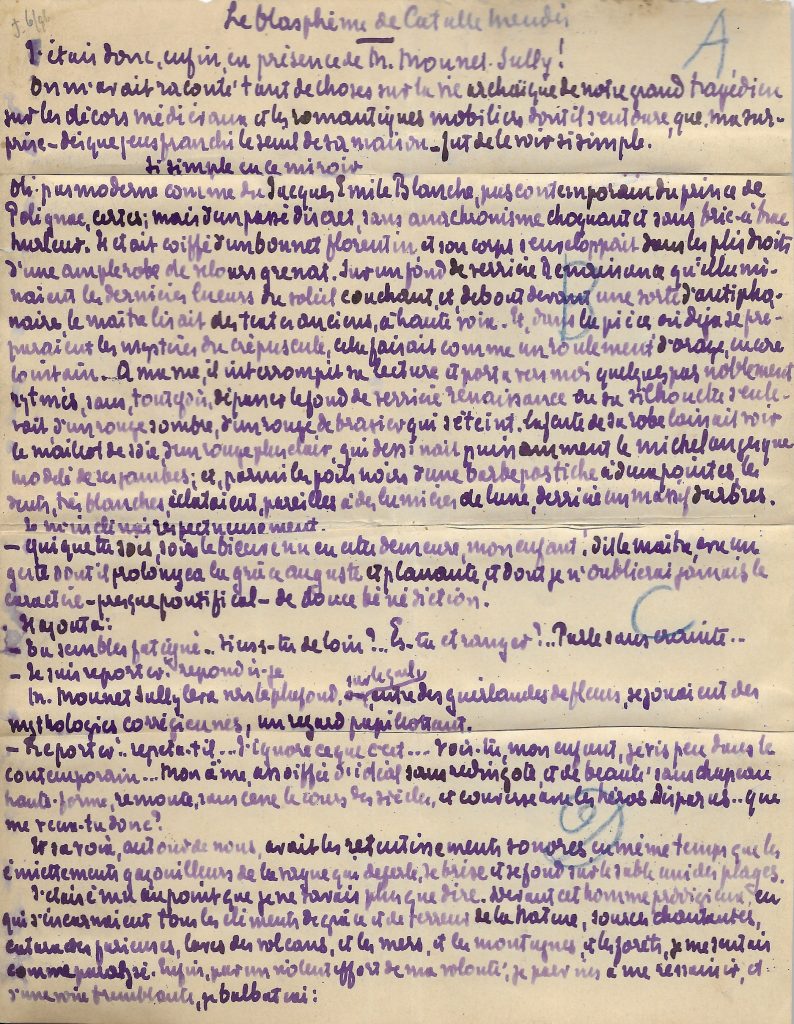 Le blasphème de Catulle Mendès
A
J'étais donc, enfin, en présence de M. Mounet-Sully!
On m'avait raconté tant de choses sur la vie archaïque de notre grand tragédien
sur les décors médiévaux et les romantiques mobiliers dont il s'entoure, que, ma sur-
prise – dès que j'eus franchi le seuil de sa maison – fut de le voir si simple.
Si simple en ce miroir
Oh! pas moderne comme du Jacques Emile Blanche, pas contemporain du prince de
Polignac, certes; mais d'un passé discret, sans anachronisme choquant et sans bric-à-brac
hurleur. Il était coiffé d'un bonnet florentin et son corps s'enveloppait dans les plis droits
d'une ample robe de velours grenat. Sur un fond de verrière Renaissance qu'illumi-
naient les dernières lueurs du soleil couchant, et, debout devant une sorte d'antipho-
naire, le maître lisait des textes anciens, à haute voix. Et, dans la pièce où déjà se pré-
paraient les mystères du crépuscule, cela faisait comme un roulement d'orage, encore
lointain... A ma vue, il interrompit sa lecture et porta vers moi quelques pas noblement
rytmés, sans, toutefois, dépasser le fond de verrière renaissance où sa silhouette s'enle-
vait d'un rouge sombre, d'un rouge de brasier qui s'éteint. La fente de sa robe laissait voir
le maillot de soie, d'un rouge plus clair, qui dessinait puissamment le michelangesque
modelé de ses jambes; et, parmi les poils noirs d'une barbe postiche à deux pointes, les
dents, très blanches, éclataient, pareilles à des lumières de lune, derrière un massif d'arbres.
Je m'inclinai respectueusement.
– Qui que tu sois, sois le bienvenu en cette demeure, mon enfant! dit le maître, avec un
geste dont il prolongea la grâce auguste et planante, et dont je n'oublierai jamais le
caractère – presque pontifical – de douce bénédiction.
Il ajouta:
– Tu sembles fatigué... Viens-tu de loin?... Es-tu étranger?... Parle sans crainte...
– Je suis reporter! répondis-je
M. Mounet Sully leva vers le plafond, sur lequel, entre des guirlandes de fleurs, se jouaient des
mythologies corrégiennes, un regard papillottant.
– Reporter!.. répéta-t-il.... J'ignore ce que c'est.... Vois-tu, mon enfant, je vis peu dans le
contemporain... Mon âme, assoiffée d'idéal sans redingote, et de beauté sans chapeau
haute-forme, remonte, sans cesse le cours des siècles, et converse avec les héros disparus... que
me veux-tu donc?
Et sa voix, autour de nous, avait les retentissements sonores en même temps que les
émiettements gazouilleurs de la vague qui déferle, se brise et se fond sur le sable uni des plages.
J'étais ému au point que je ne savais plus que dire. Devant cet homme prodigieux, en
qui s'incarnaient tous les éléments de grâce et de terreur de la Nature, sources chantantes,
cataractes furieuses, laves des volcans, et les mers, et les montagnes, et les forêts, je me sentais
comme paralysé. Enfin, par un violent effort de ma volonté, je parvins à me ressaisir, et
d'une voix tremblante, je balbutiai:
B
C